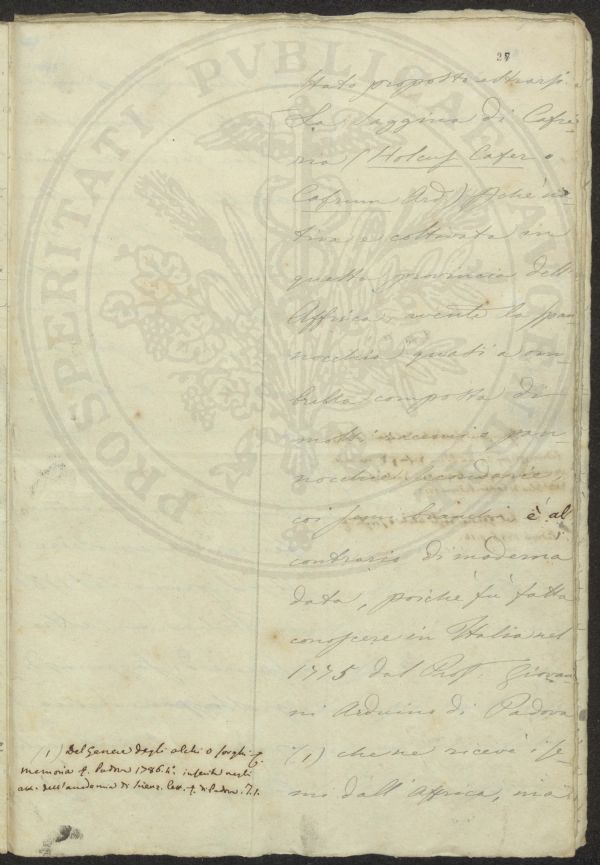 27
stato proposto estrarsi.
La Saggina di Cafre-
ria (Holcus Cafer o
Cafrum Ard.) che na-
tiva e coltivata in
quella provincia dell'
Affrica avente la pan-
nocchia quasi a om-
brella composta di
molti racemi o pan-
nocchie secondarie
coi semi bianchi è al
contrario di moderna
data, poichè fù fatta
conoscere in Italia nel
1775 dal Prof. Giovan-
ni Arduino di Padova
(1) che ne ricevè i se-
mi dall'Affrica, ma
(1) Del genere degli olchi o sorghi
memoria f. Padova 1786. 4°. inserita negli
acc. dell'accademia di Scienz. Lett. f. di Padova. T. 1.
PROSPERITATI PUBLICAE AUGE